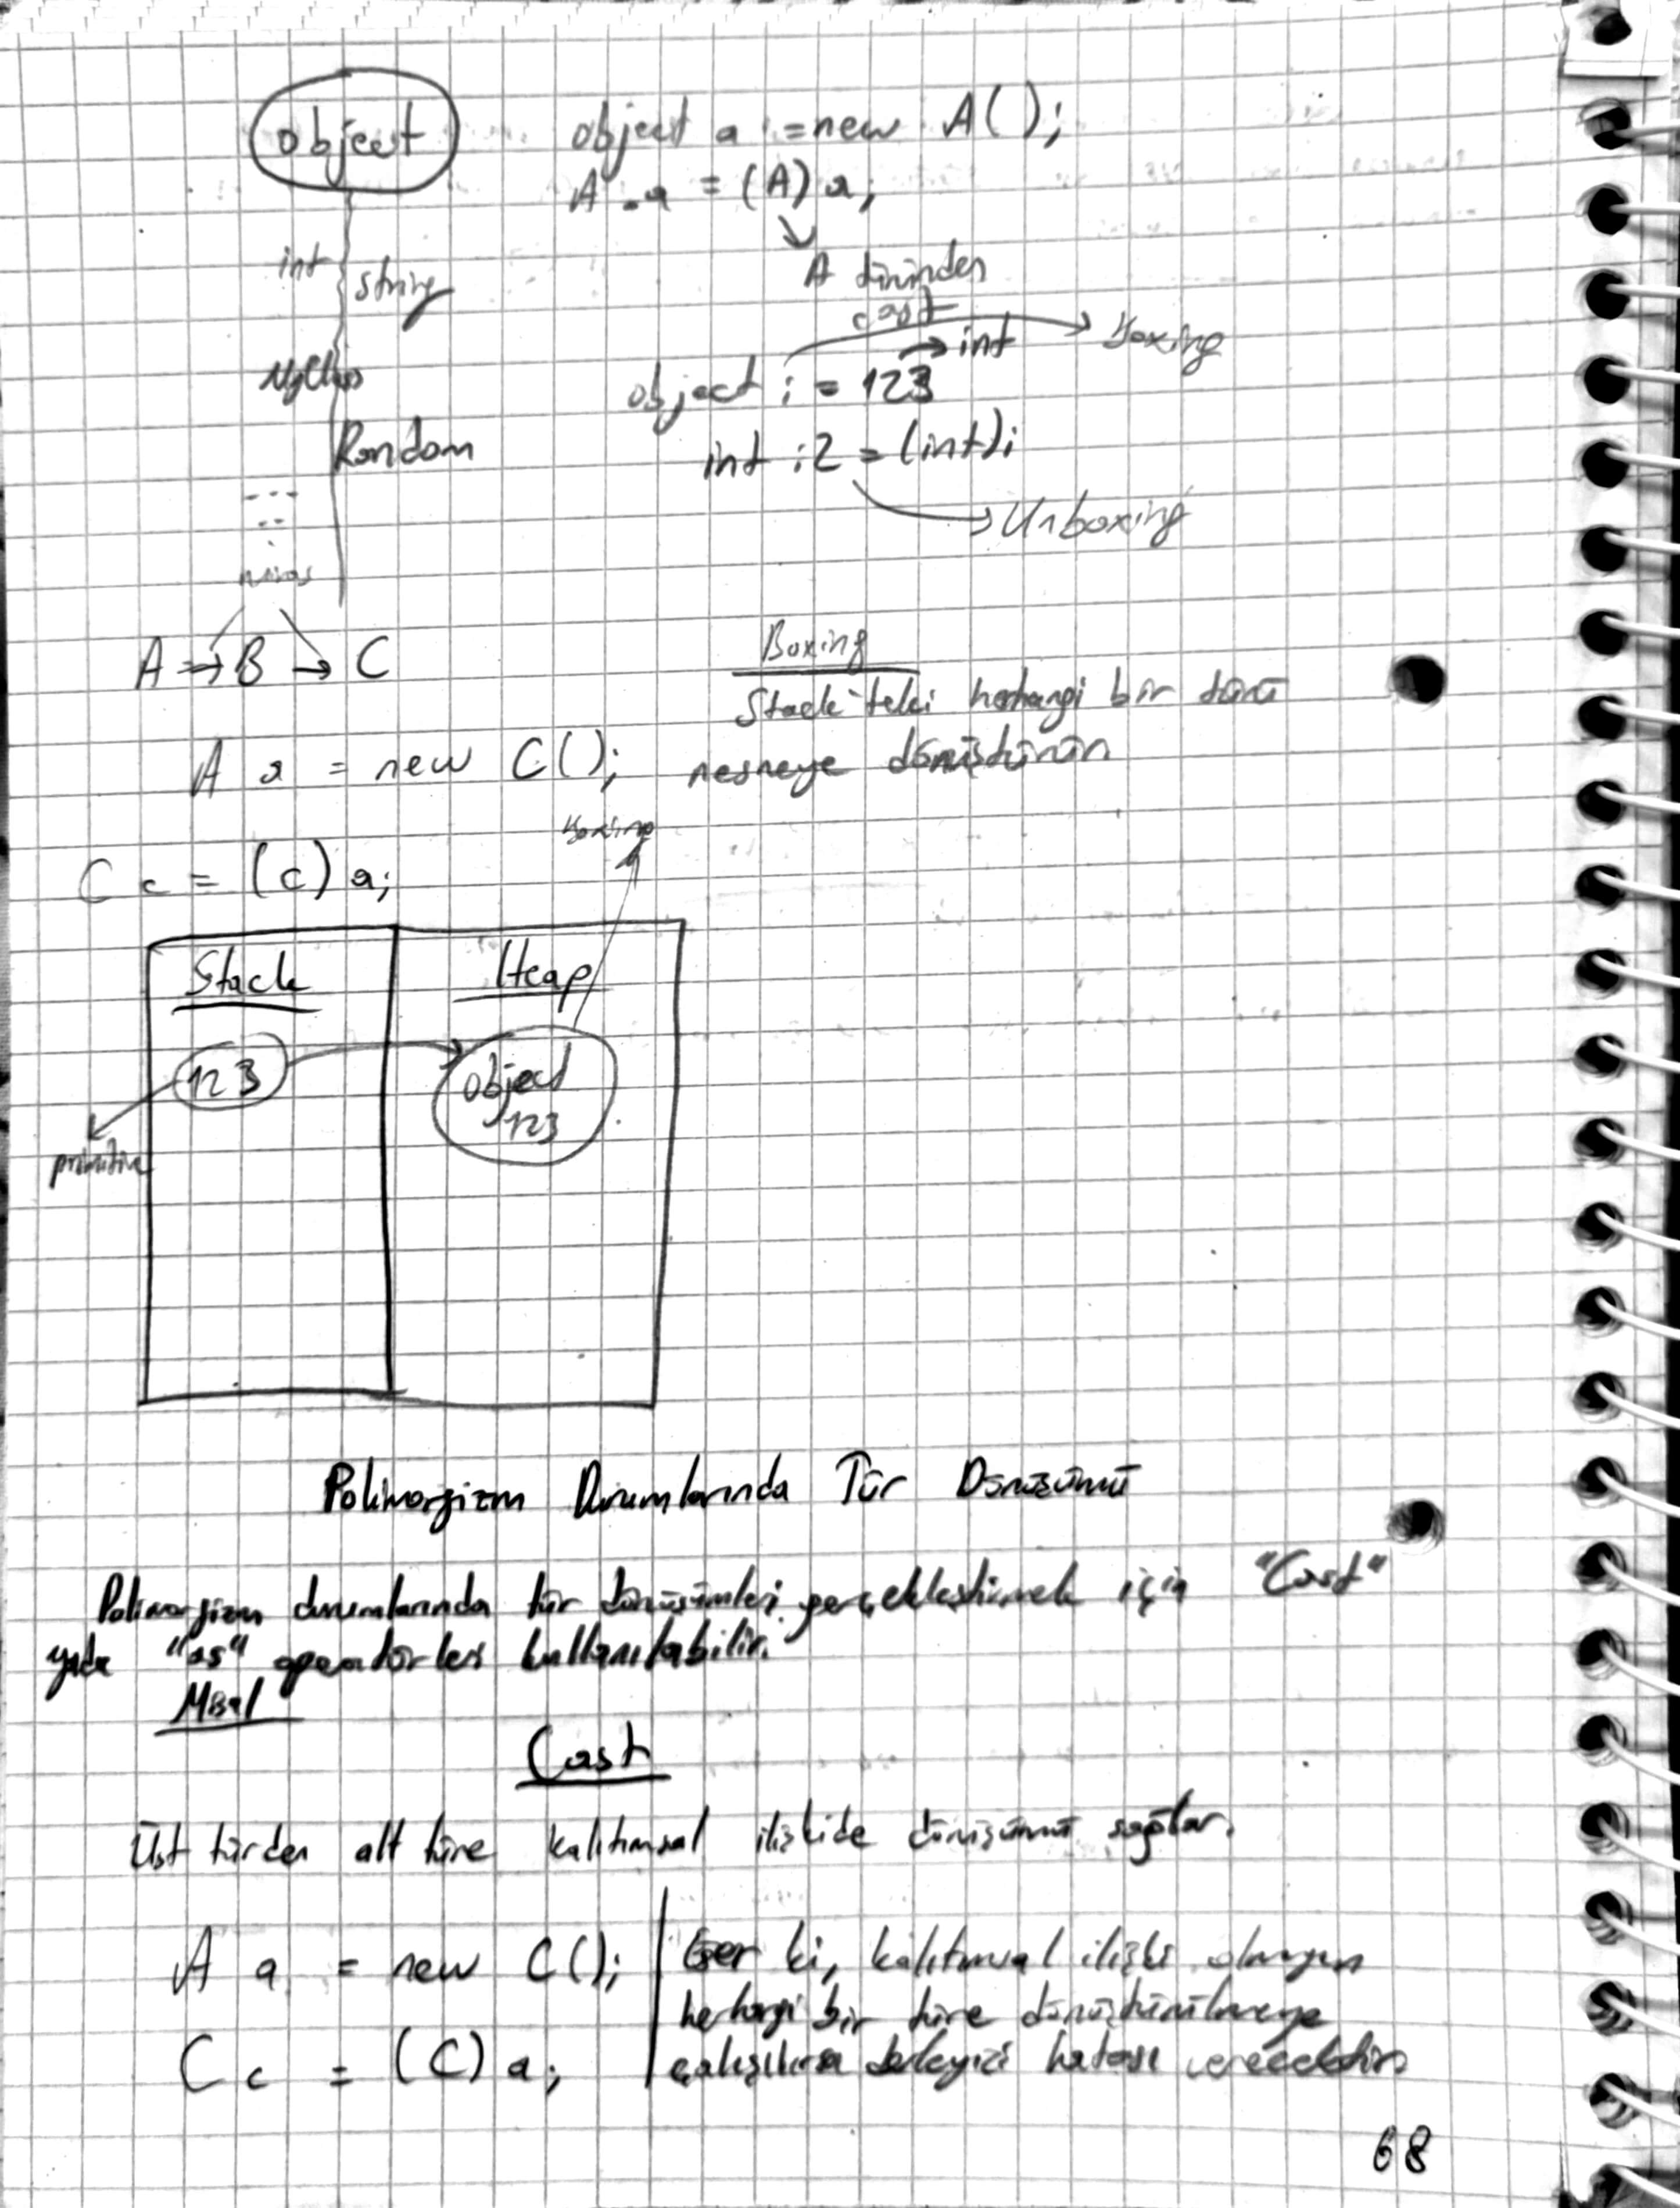 object
object a = new A();
A a = (A) a;
A türünden
cast
int
string
MyClass
Random
miras
object i = 123
int
Boxing
int i2 = (int)i
Unboxing
A → B → C
A a = new C();
C c = (C) a;
Boxing
Stack'teki herhangi bir türü
nesneye dönüştürür
Boxing
Stack
Heap
123
object
123
primitive
Polimorfizm Durumlarında Tür Dönüşümü
Polimorfizm durumlarında tür dönüşümleri gerçekleştirmek için "Cast"
yada "as" operatörleri kullanılabilir.
Misal
Cast
Üst türden alt türe kalıtımsal ilişkide dönüşümü sağlar.
A a = new C();
C c = (C) a;
Eğer ki, kalıtımsal ilişki olmayan
herhangi bir türe dönüştürülmeye
çalışılırsa derleyici hatası verecektir
68